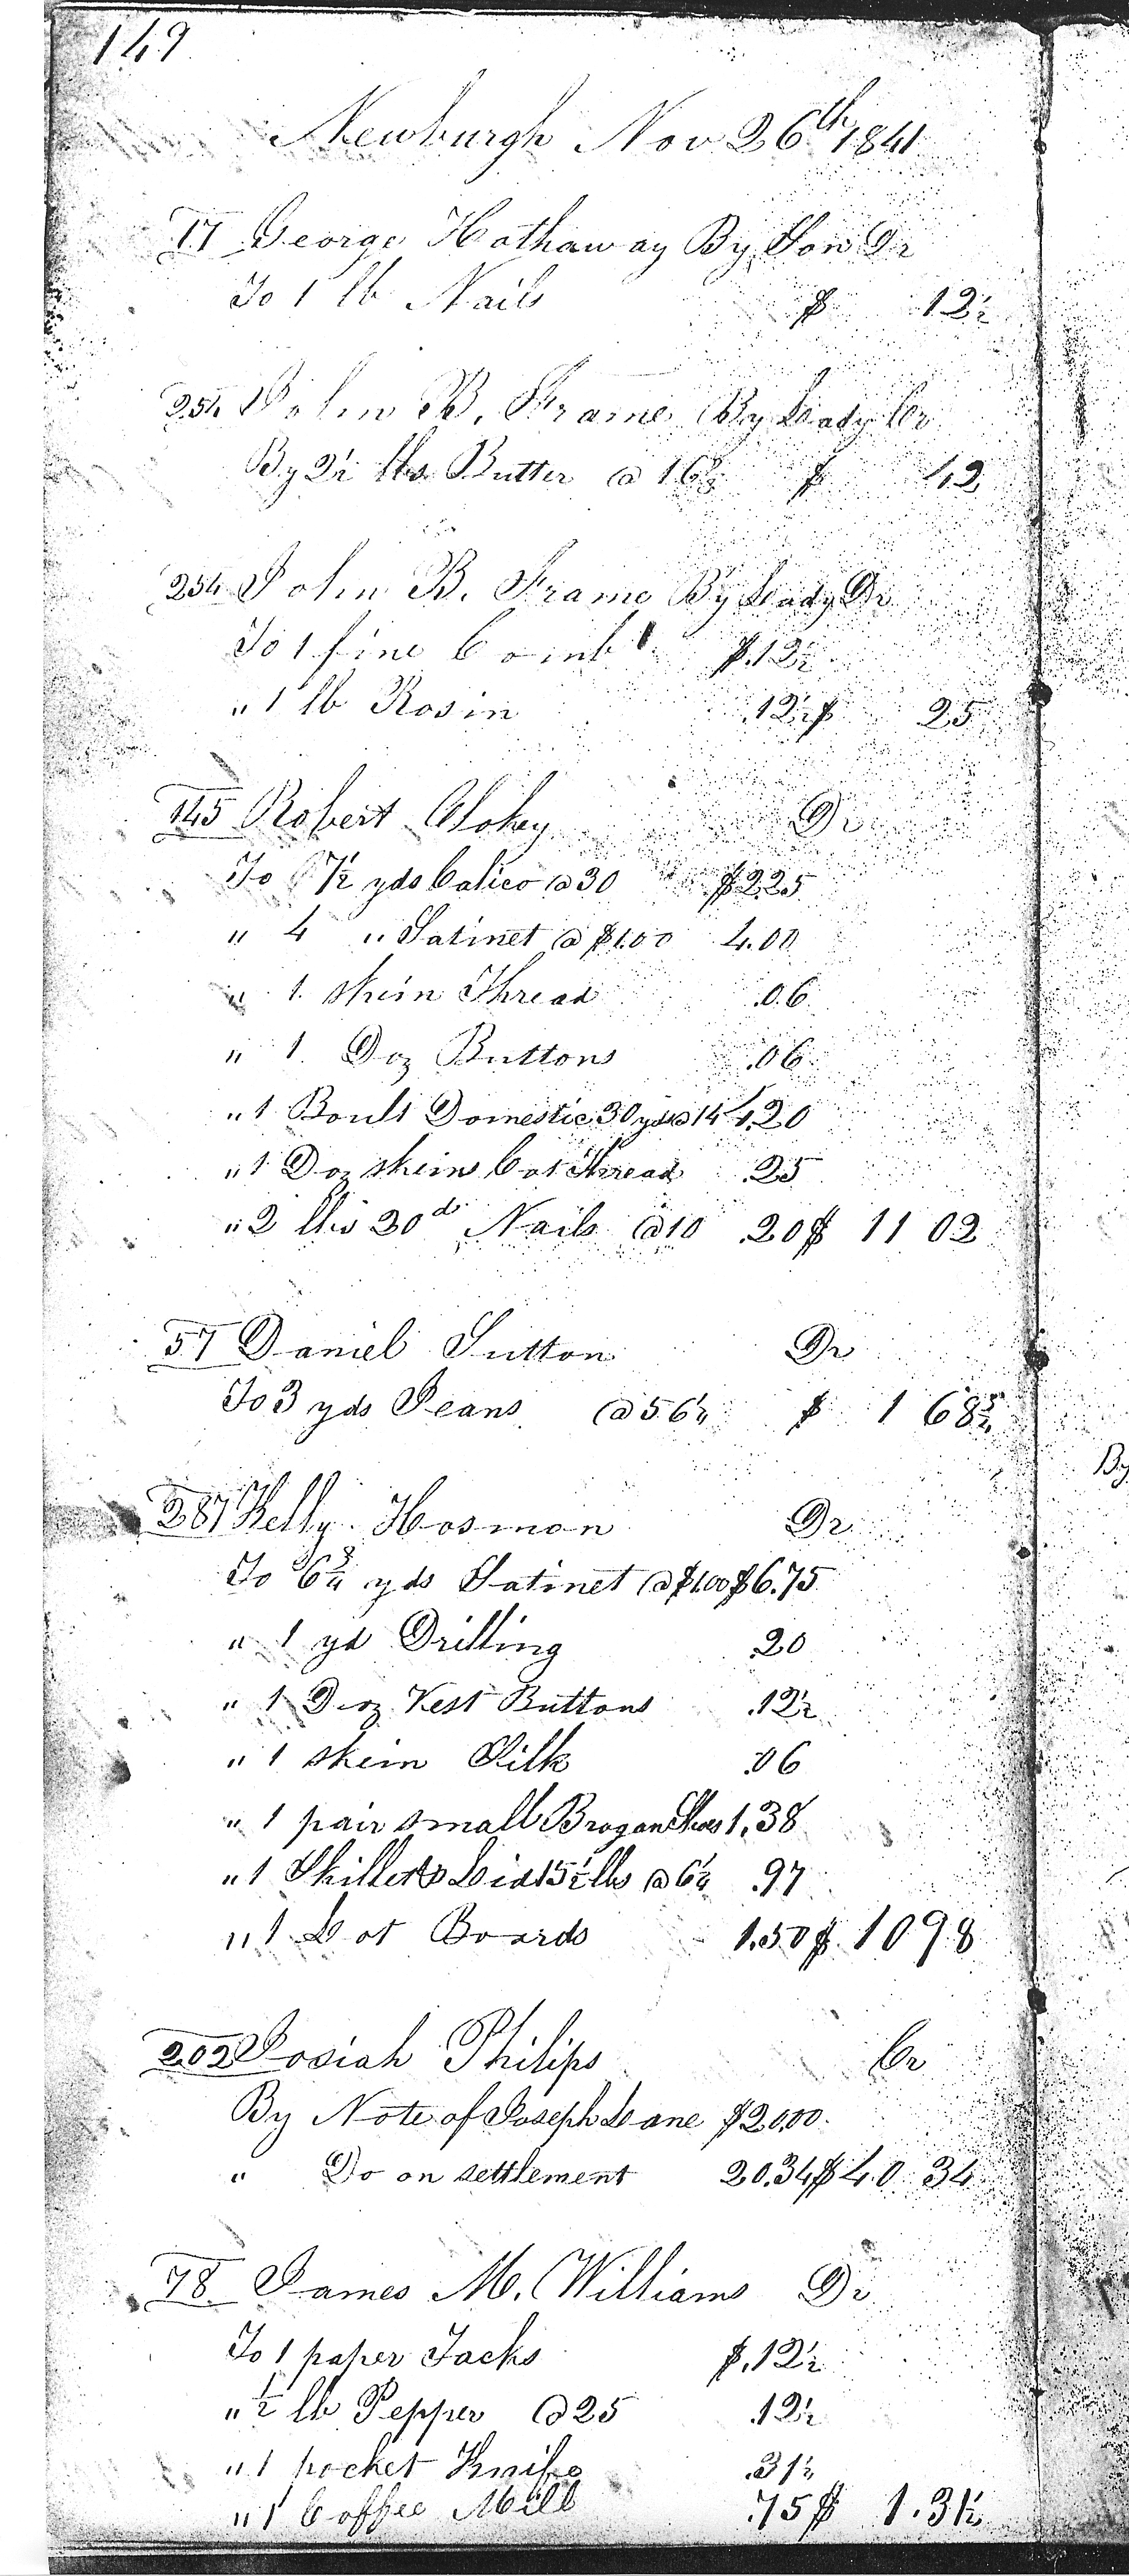 149
Newburgh Nov 26th 1841
17 George Hathaway By Son Dr
To 1 lb Nails $ 12½
254 John B. Frame By Lady Cr
By 2½ lbs Butter @ 16⅔ $ 42
254 John B. Frame By Lady Dr
To 1 fine Comb $.12½
" 1 lb Rosin .12½ $ 25
145 Robert Glokey Dr
To 7½ yds Calico @ 30 $2.25
" 4 " Satinet @ $1.00 4.00
" 1 skein Thread .06
" 1 Doz Buttons .06
" 1 Boult Domestic 30 yds @ 14 4.20
" 1 Doz skeins Cot Thread .25
" 2 lbs 20d Nails @ 10 .20 $ 11 02
57 Daniel Sutton Dr
To 3 yds Jeans @ 56¼ $ 1 68¾
287 Kelly Hosmon Dr
To 6¾ yds Satinet @ $1.00 $6.75
" 1 yd Drilling .20
" 1 Doz Vest Buttons .12½
" 1 skein Silk .06
" 1 pair small Brogan Shoes 1.38
" 1 Skillet & Lid 15½ lbs @ 6¼ .97
" 1 Lot Boards 1.50 $ 10 98
202 Josiah Philips Cr
By Note of Joseph Lane $20.00
" Do on settlement 20.34 $ 40 34
78 James M. Williams Dr
To 1 paper Tacks $.12½
" ½ lb Pepper @ 25 .12½
" 1 pocket Knife .31¼
" 1 Coffee Mill .75 $ 1.31¼
By